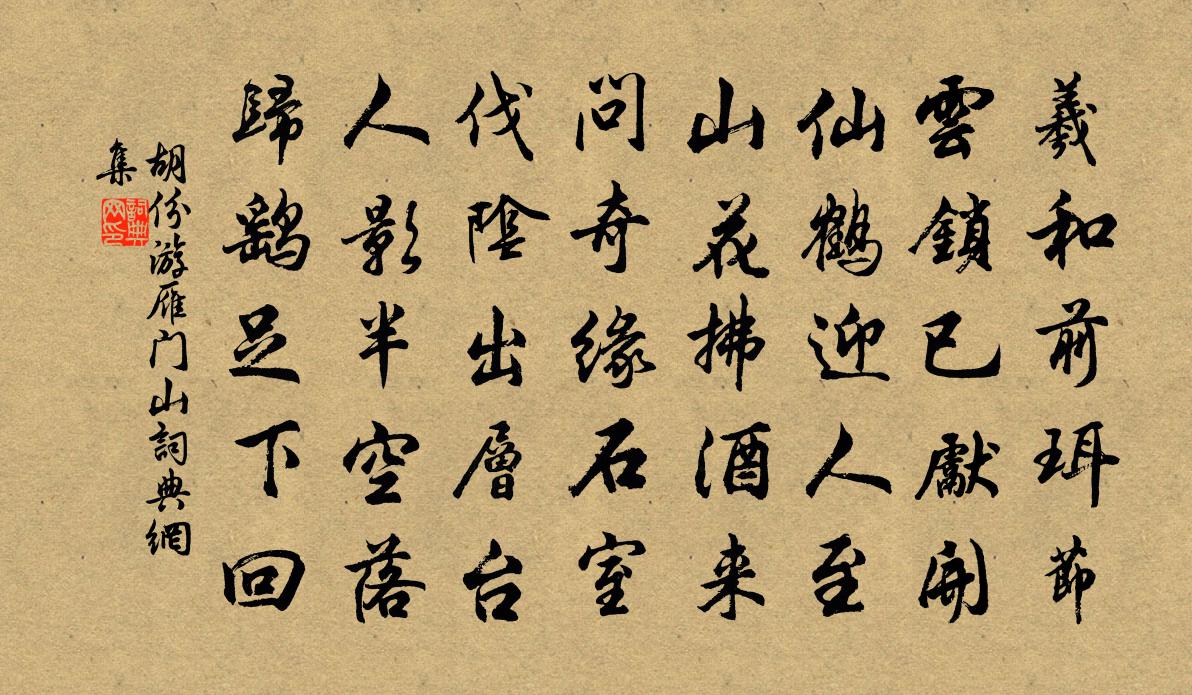 羲和前珥節
雲鎖已獻開
仙鶴迎人至
山花拂酒来
問奇緣石室
伐陰出層台
人影半空落
歸鷁足下回
胡份游雁门山詞典網
集
詞典
网印